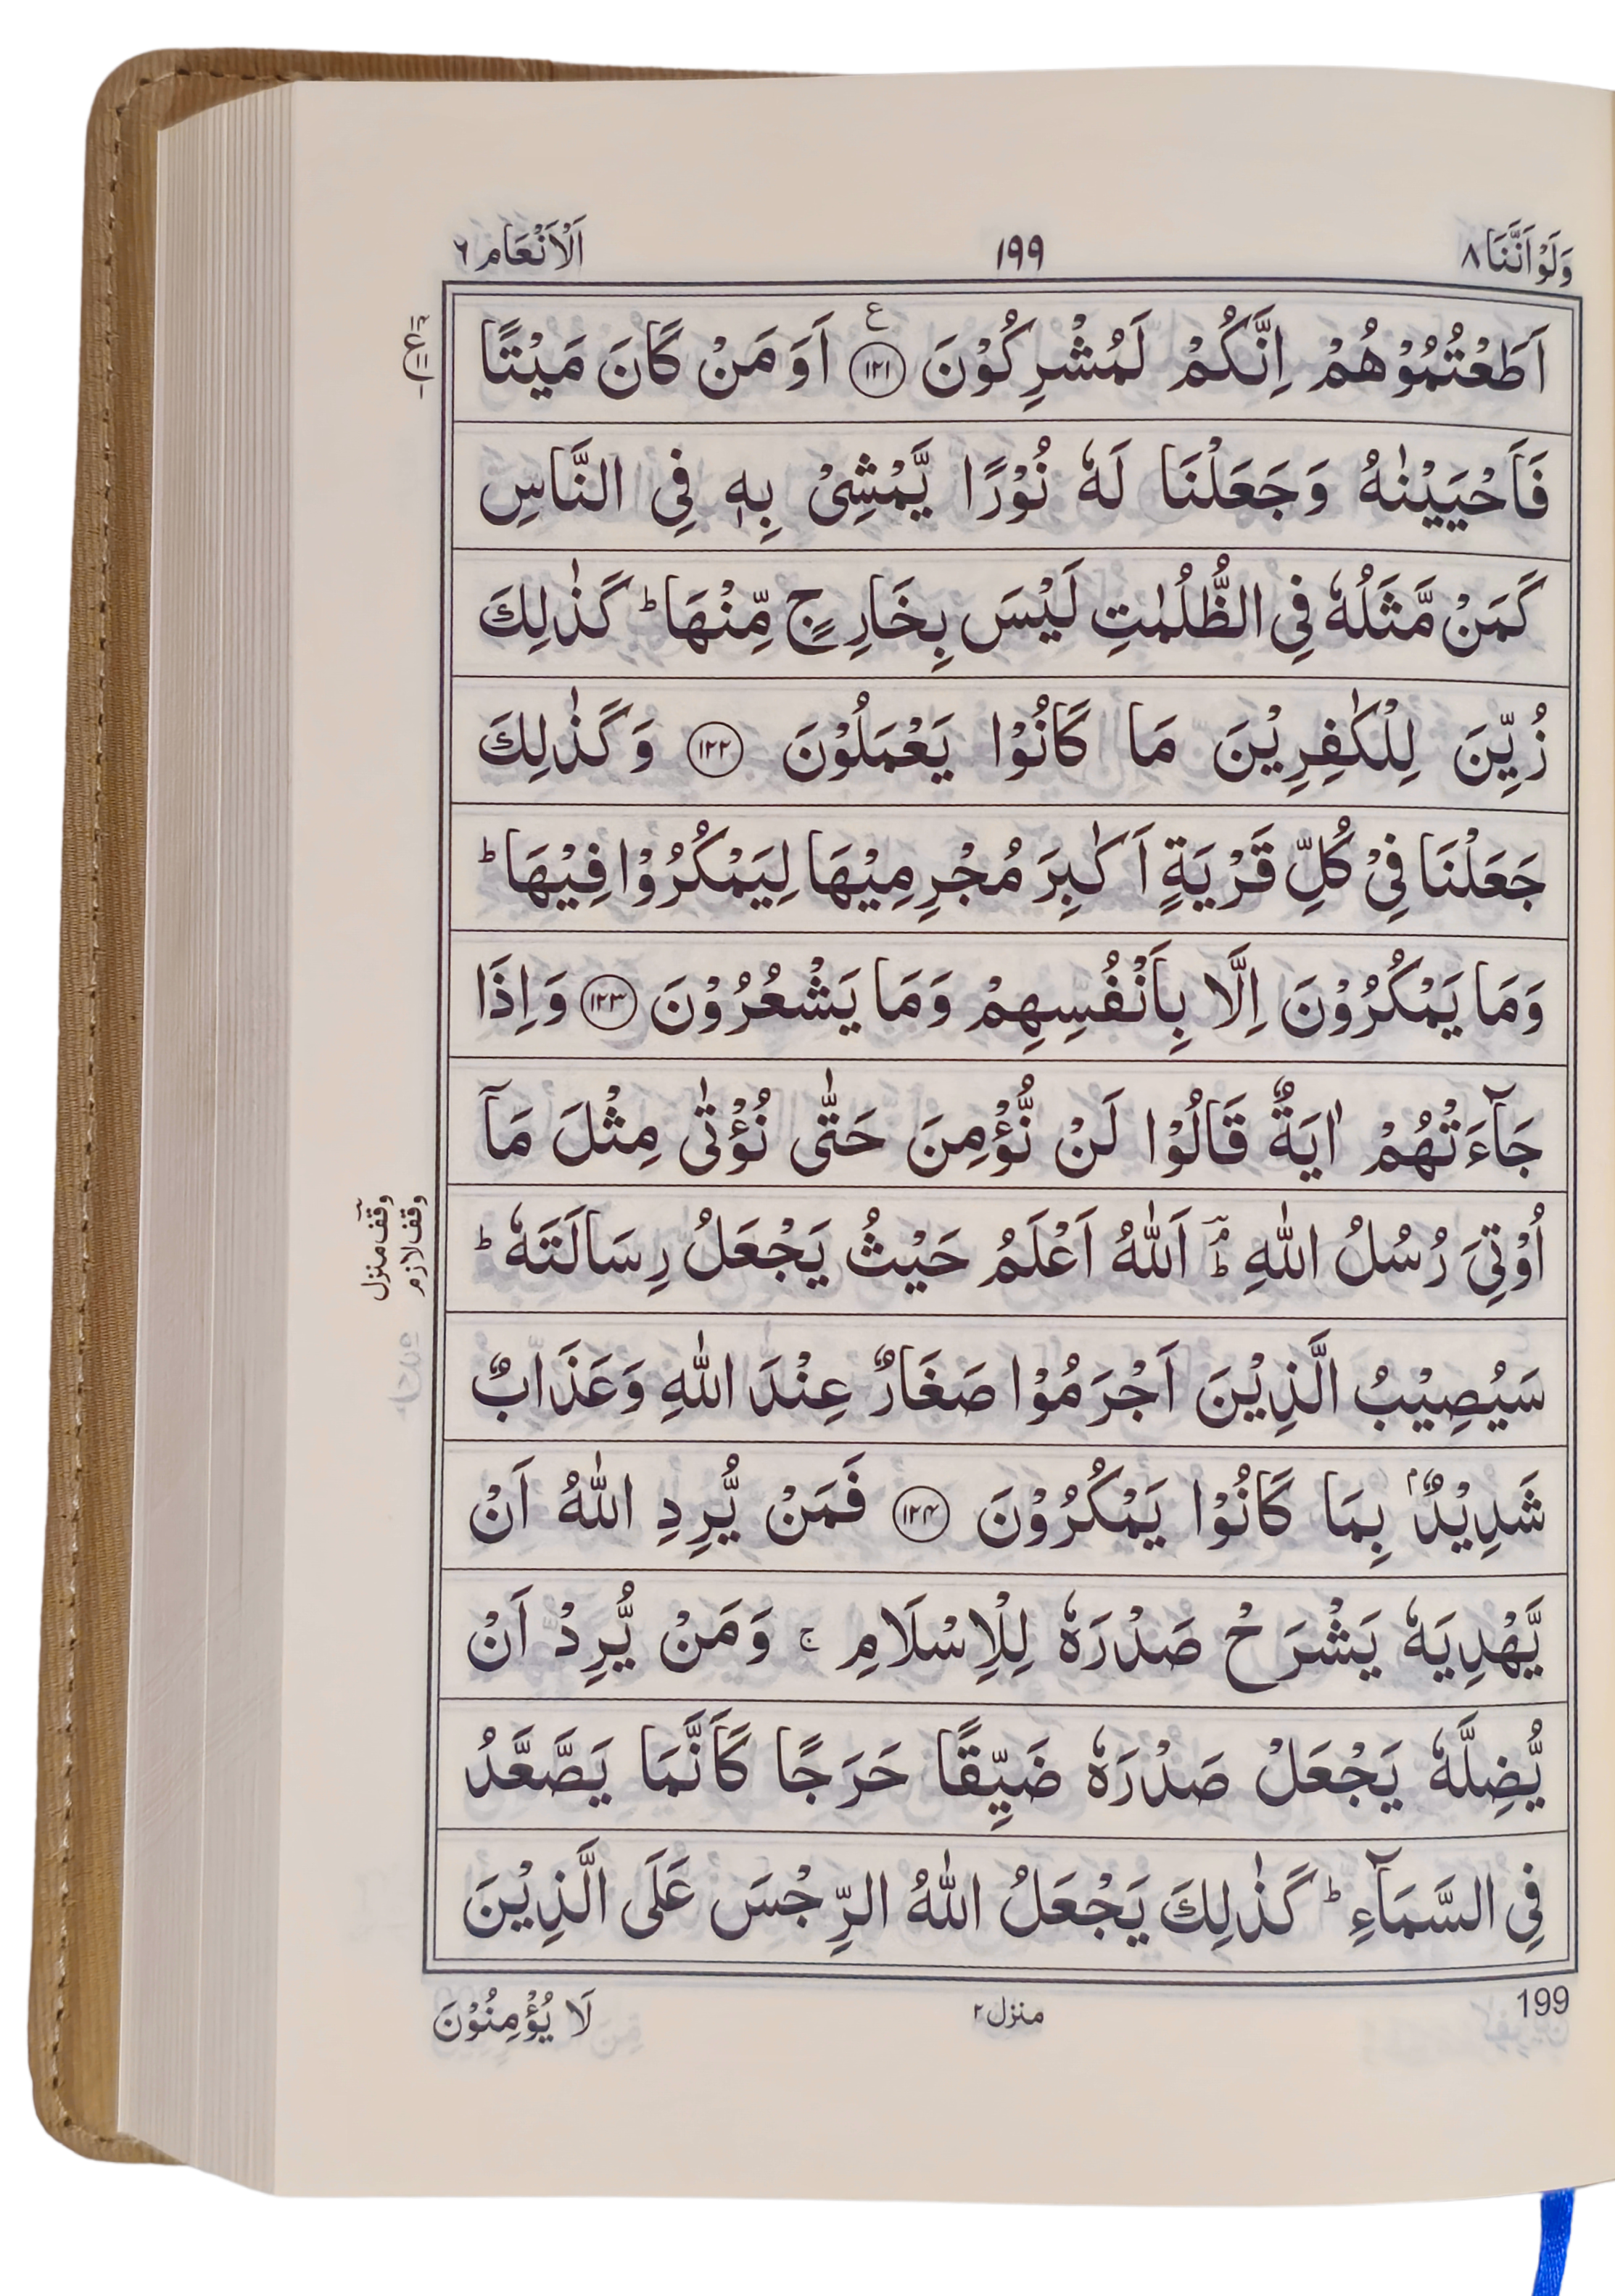 وَلَوْاَنَّنَا ٨
١٩٩
اَلْاَنْعَام ٦
اَطَعْتُمُوْهُمْ اِنَّكُمْ لَمُشْرِكُوْنَ ۧ ﴿١٢١﴾ اَوَ مَنْ كَانَ مَيْتًا
فَاَحْيَيْنٰهُ وَجَعَلْنَا لَهٗ نُوْرًا يَّمْشِىْ بِهٖ فِى النَّاسِ
كَمَنْ مَّثَلُهٗ فِى الظُّلُمٰتِ لَيْسَ بِخَارِجٍ مِّنْهَا ؕ كَذٰلِكَ
زُيِّنَ لِلْكٰفِرِيْنَ مَا كَانُوْا يَعْمَلُوْنَ ﴿١٢٢﴾ وَكَذٰلِكَ
جَعَلْنَا فِىْ كُلِّ قَرْيَةٍ اَكٰبِرَ مُجْرِمِيْهَا لِيَمْكُرُوْا فِيْهَا ؕ
وَمَا يَمْكُرُوْنَ اِلَّا بِاَنْفُسِهِمْ وَمَا يَشْعُرُوْنَ ﴿١٢٣﴾ وَاِذَا
جَآءَتْهُمْ اٰيَةٌ قَالُوْا لَنْ نُّؤْمِنَ حَتّٰى نُؤْتٰى مِثْلَ مَآ
اُوْتِىَ رُسُلُ اللّٰهِ ؕ ۘ اَللّٰهُ اَعْلَمُ حَيْثُ يَجْعَلُ رِسَالَتَهٗ ؕ
سَيُصِيْبُ الَّذِيْنَ اَجْرَمُوْا صَغَارٌ عِنْدَ اللّٰهِ وَعَذَابٌ
شَدِيْدٌۢ بِمَا كَانُوْا يَمْكُرُوْنَ ﴿١٢٤﴾ فَمَنْ يُّرِدِ اللّٰهُ اَنْ
يَّهْدِيَهٗ يَشْرَحْ صَدْرَهٗ لِلْاِسْلَامِ ۚ وَمَنْ يُّرِدْ اَنْ
يُّضِلَّهٗ يَجْعَلْ صَدْرَهٗ ضَيِّقًا حَرَجًا كَاَنَّمَا يَصَّعَّدُ
فِى السَّمَآءِ ؕ كَذٰلِكَ يَجْعَلُ اللّٰهُ الرِّجْسَ عَلَى الَّذِيْنَ
وقف لازم
وقف منزل
199
منزل ٢
لَا يُؤْمِنُوْنَ